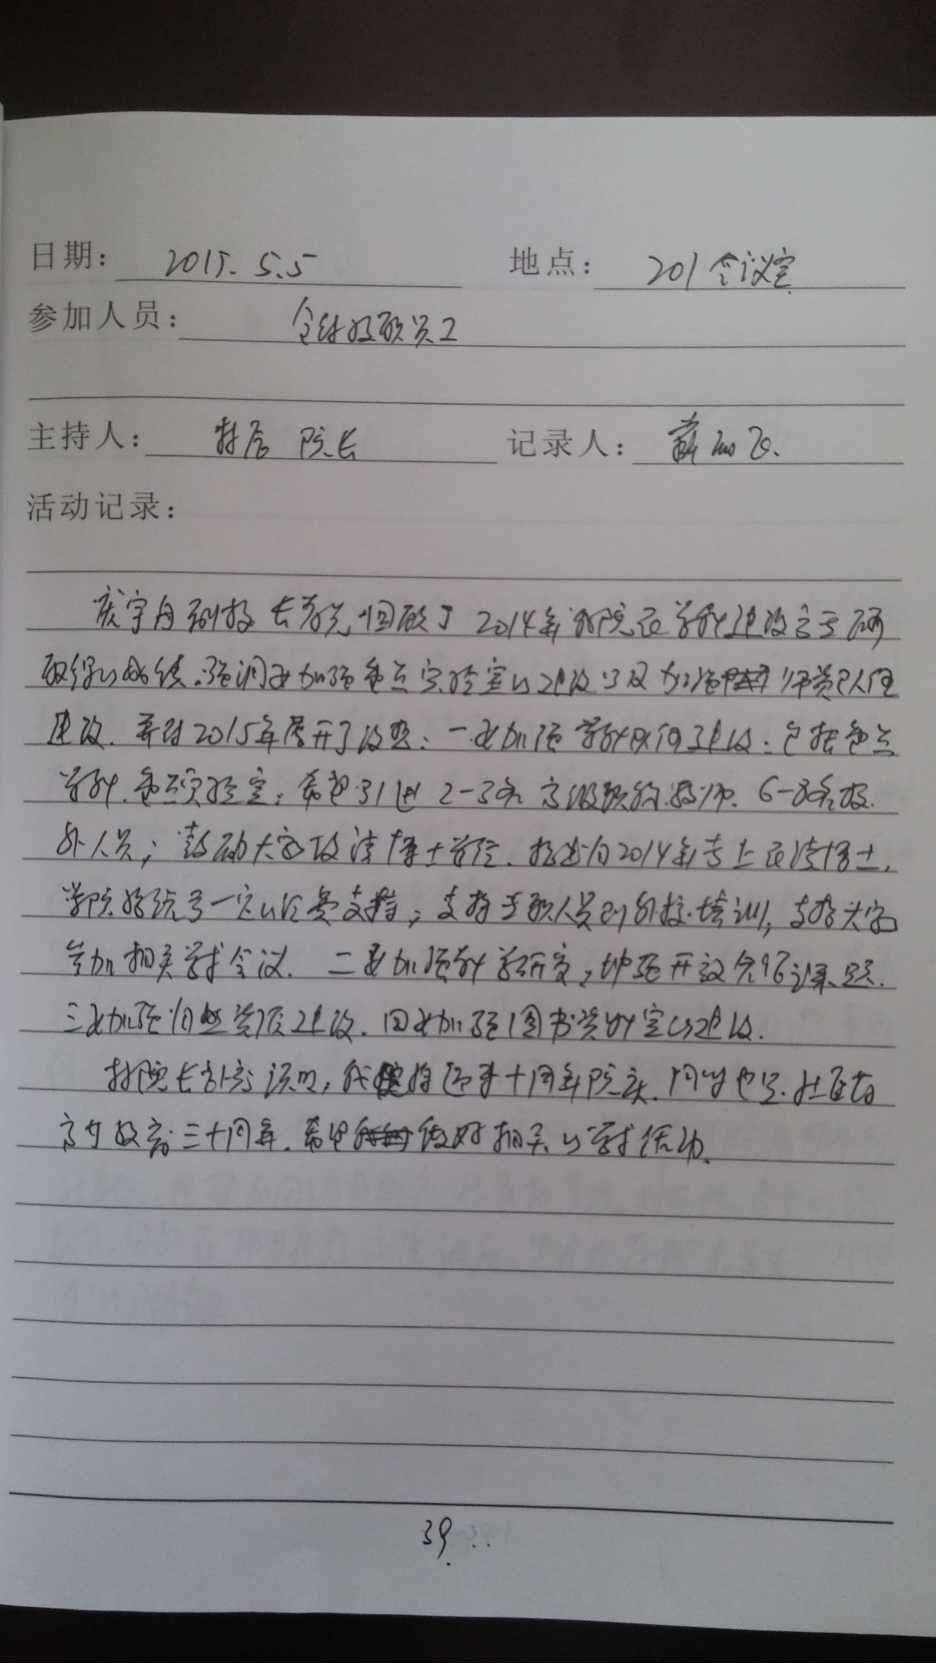 日期： 2015. 5.5 地点： 201会议室
参加人员： 全体教职员工
主持人： 院长 记录人： 薛
活动记录：
宇 副校长首先回顾了2014年我院在学科建设方面
取得的成绩。强调要加强重点实验室的建设以及加强师资队伍
建设. 并对2015年展开了设想：一要加强学科队伍建设：包括重点
学科.重点实验室；希望引进2-3名高级职称教师. 6-8名校
外人员；鼓励大家攻读博士学位. 2014年考上在读博士，
学院将给予一定的经费支持；支持在职人员到外校培训，支持大家
参加相关学术会议. 二要加强科学研究，加强开放合作课题.
三要加强 资源建设. 四要加强图书资料室的建设.
院长 ，我院将迎来十周年院庆. 同时也是
高教三十周年. 希望做好相关的学术活动.
39